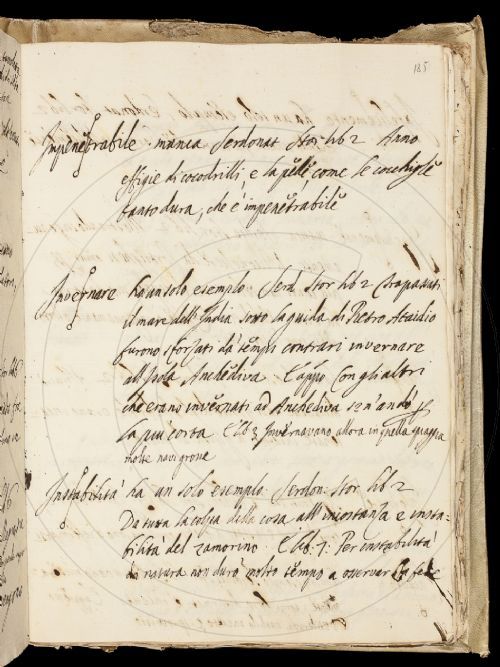 185
Impenetrabile manca Serdonat Stor lib 2 Anno
effigie di cocodrilli, e la pelle come le cocchiglie
tanto dura, che è impenetrabile
Invernare ha un solo esempio. Serd Stor lib 2 Trapassati
il mare dell'India sotto la guida di Pietro Ataidio
furono sforzati da tempi contrari invernare
all'Isola Anchediva. E appo Con gli altri
che erano invernati ad Anchediva se n'andò
la più corta. E lib 3 Invernavano allora in quella spiaggia
molte navi grosse
Instabilità ha un solo esempio. Serdon. Stor lib 2
Da tutta la colpa della cosa all' incostanza e insta-
bilità del Zamorino. E lib. 7. Per instabilità
di natura non durò molto tempo a osservar la fede